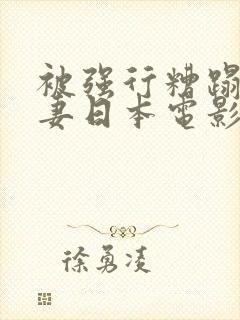 被强行糟蹋
妻日本电影
徐勇凌